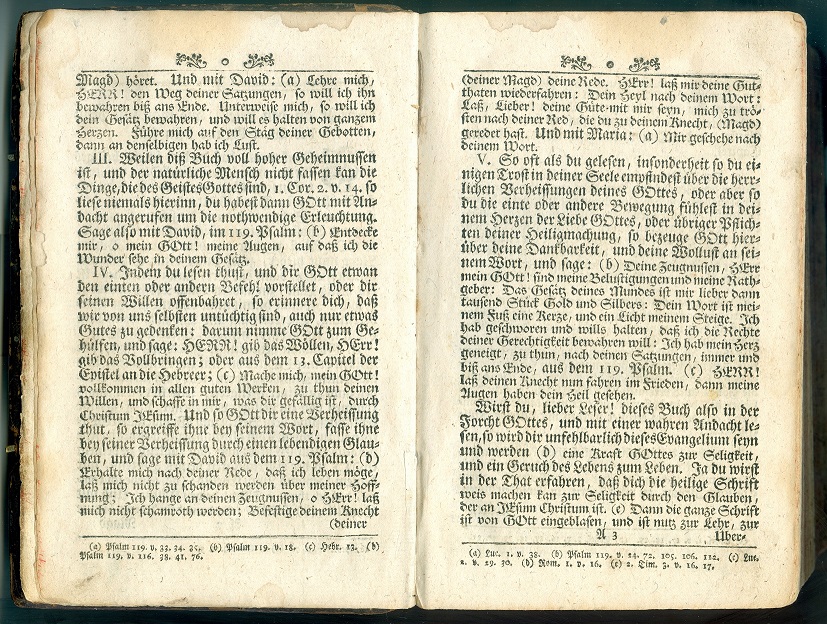 Magd) höret. Und mit David: (a) Lehre mich,
HERR! den Weg deiner Satzungen, so will ich ihn
bewahren biß ans Ende. Unterweise mich, so will ich
dein Gesätz bewahren, und will es halten von ganzem
Herzen. Führe mich auf den Stäg deiner Gebotten,
dann an denselbigen hab ich Lust.
III. Weilen diß Buch voll hoher Geheimnussen
ist, und der natürliche Mensch nicht fassen kan die
Dinge, die des Geistes Gottes sind, 1. Cor. 2. v. 14. so
liese niemals hierinn, du habest dann GOtt mit An-
dacht angerufen um die nothwendige Erleuchtung.
Sage also mit David, im 119. Psalm: (b) Entdecke
mir, o mein GOtt! meine Augen, auf daß ich die
Wunder sehe in deinem Gesätz.
IV. Indem du lesen thust, und dir GOtt etwan
den einten oder andern Befehl vorstellet, oder dir
seinen Willen offenbahret, so erinnere dich, daß
wir von uns selbsten untüchtig sind, auch nur etwas
Gutes zu gedenken: darum nimme GOtt zum Ge-
hülfen, und sage: HERR! gib das Wöllen, HErr!
gib das Vollbringen; oder aus dem 13. Capitel der
Epistel an die Hebreer; (c) Mache mich, mein GOtt!
vollkommen in allen guten Werken, zu thun deinen
Willen, und schaffe in mir, was dir gefällig ist, durch
Christum JEsum. Und so GOtt dir eine Verheissung
thut, so ergreiffe ihne bey seinem Wort, fasse ihne
bey seiner Verheissung durch einen lebendigen Glau-
ben, und sage mit David aus dem 119. Psalm: (d)
Erhalte mich nach deiner Rede, daß ich leben möge,
laß mich nicht zu schanden werden über meiner Hoff-
nung; Ich hange an deinen Zeugnussen, o HErr! laß
mich nicht schamroth werden; Befestige deinem Knecht
(deiner
(a) Psalm 119. v. 33. 34. 35. (b) Psalm 119. v. 18. (c) Hebr. 13. (d)
Psalm 119. v. 116. 38. 41. 76.
(deiner Magd) deine Rede. HErr! laß mir deine Gut-
thaten wiederfahren: Dein Heyl nach deinem Wort:
Laß, Lieber! deine Güte mit mir seyn, mich zu trö-
sten nach deiner Red, die du zu deinem Knecht, (Magd)
geredet hast. Und mit Maria: (a) Mir geschehe nach
deinem Wort.
V. So oft als du gelesen, insonderheit so du ei-
nigen Trost in deiner Seele empfindest über die herr-
lichen Verheissungen deines GOttes, oder aber so
du die einte oder andere Bewegung fühlest in dei-
nem Herzen der Liebe GOttes, oder übriger Pflich-
ten deiner Heiligmachung, so bezeuge GOtt hier-
über deine Dankbarkeit, und deine Wollust an sei-
nem Wort, und sage: (b) Deine Zeugnussen, HErr
mein GOtt! sind meine Belustigungen und meine Rath-
geber: Das Gesätz deines Mundes ist mir lieber dann
tausend Stück Gold und Silbers: Dein Wort ist mei-
nem Fuß eine Kerze, und ein Licht meinem Steige. Ich
hab geschworen und wills halten, daß ich die Rechte
deiner Gerechtigkeit bewahren will: Ich hab mein Herz
geneigt, zu thun, nach deinen Satzungen, immer und
biß ans Ende, aus dem 119. Psalm. (c) HERR!
laß deinen Knecht nun fahren im Frieden, dann meine
Augen haben dein Heil gesehen.
Wirst du, lieber Leser! dieses Buch also in der
Forcht GOttes, und mit einer wahren Andacht le-
sen, so wird dir unfehlbarlich dieses Evangelium seyn
und werden (d) eine Kraft GOttes zur Seligkeit,
und ein Geruch des Lebens zum Leben. Ja du wirst
in der That erfahren, daß dich die heilige Schrift
weis machen kan zur Seligkeit durch den Glauben,
der an JEsum Christum ist. (e) Dann die ganze Schrift
ist von GOtt eingeblasen, und ist nutz zur Lehr, zur
A 3 Uber-
(a) Luc. 1. v. 38. (b) Psalm 119. v. 24. 72. 105. 106. 112. (c) Luc.
2. v. 29. 30. (d) Rom. 1. v. 16. (e) 2. Tim. 3. v. 16. 17.